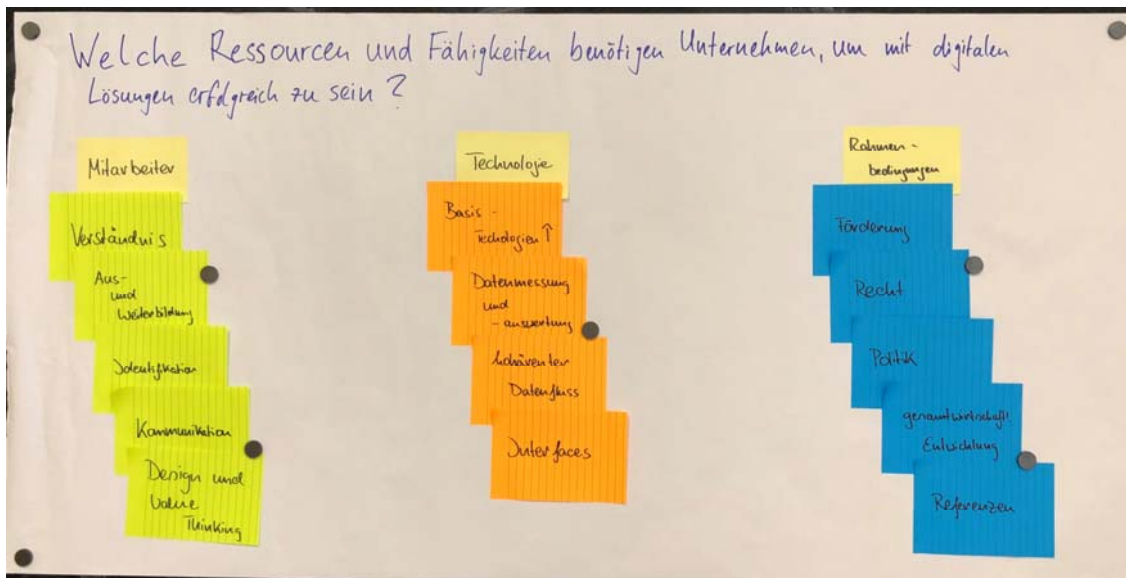 Welche Ressourcen und Fähigkeiten benötigen Unternehmen, um mit digitalen
Lösungen erfolgreich zu sein?
Mitarbeiter
Verständnis
Aus-
und
Weiterbildung
Identifikation
Kommunikation
Design und
Value
Thinking
Technologie
Basis-
Technologien ↑
Datenmessung
und
-auswertung
kohärenter
Datenfluss
Interfaces
Rahmen-
bedingungen
Förderung
Recht
Politik
gesamtwirtschaftl.
Entwicklung
Referenzen